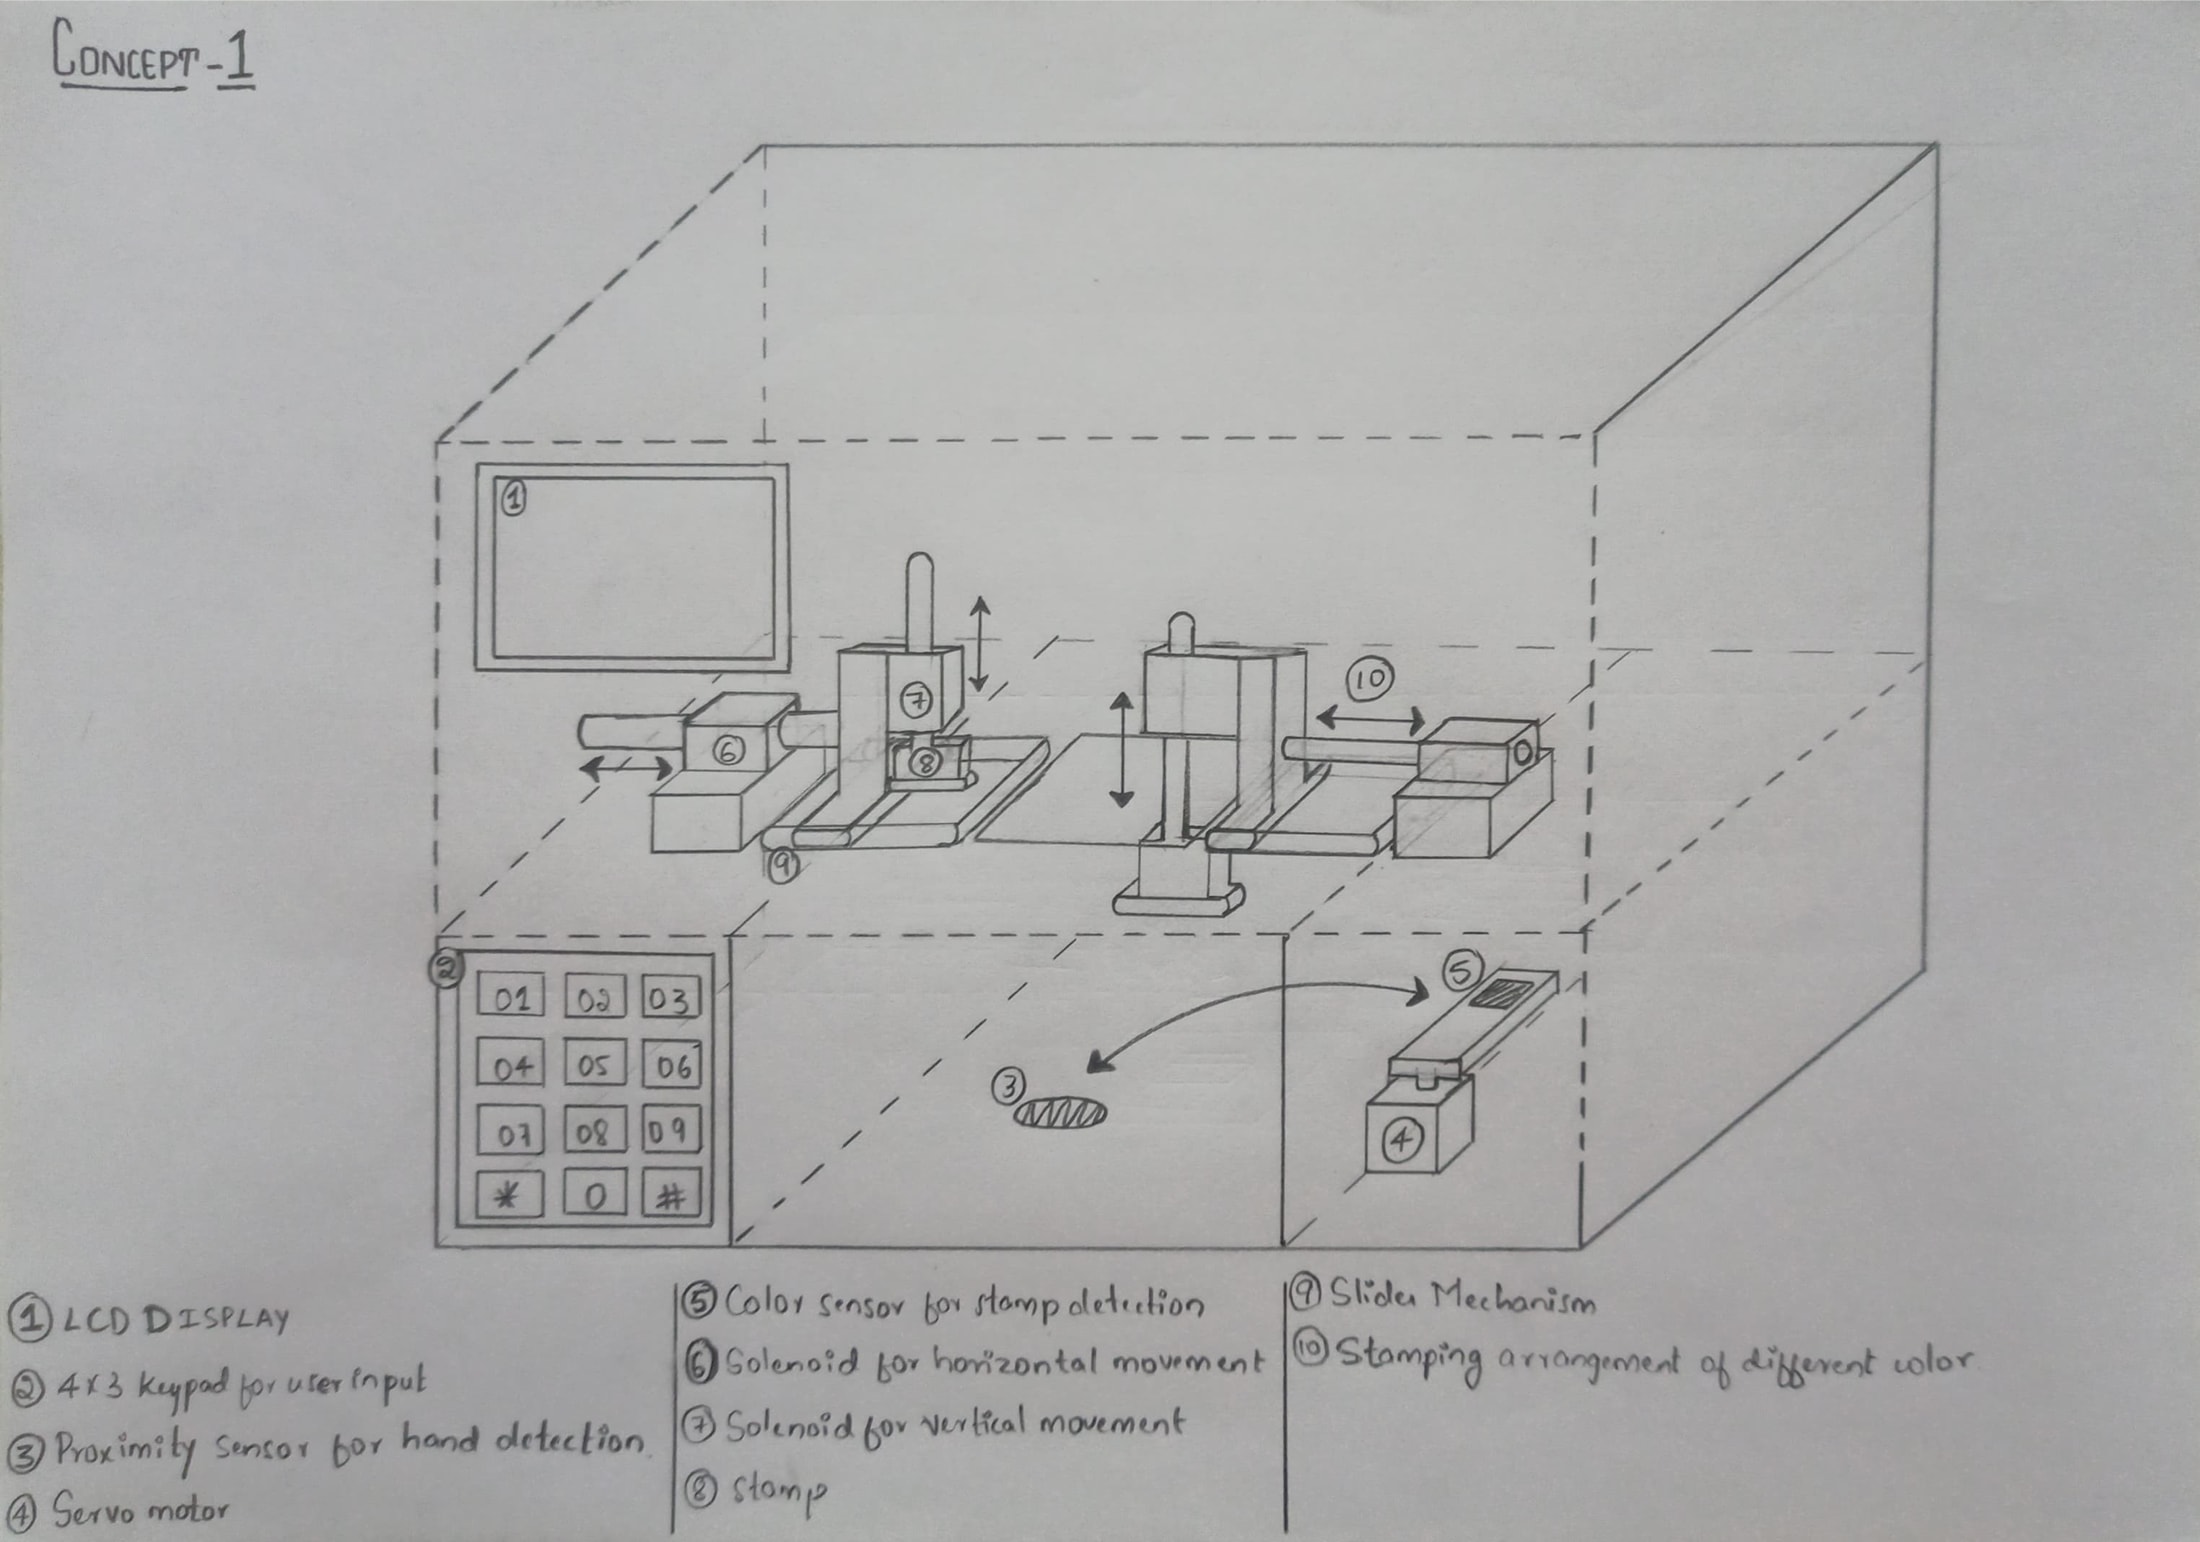 CONCEPT-1
1
10
7
6
8
9
2
5
01 02 03
04 05 06
3
07 08 09
4
* 0 #
① LCD DISPLAY
② 4x3 Keypad for user input
③ Proximity sensor for hand detection.
④ Servo motor
⑤ Color sensor for stamp detection
⑥ Solenoid for horizontal movement
⑦ Solenoid for vertical movement
⑧ Stamp
⑨ Slider Mechanism
⑩ Stamping arrangement of different color